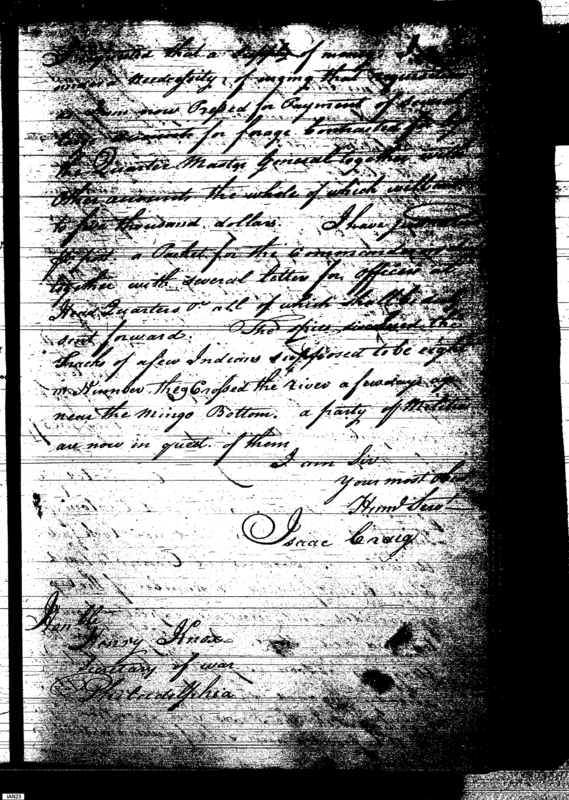 I requested that a supply of money
under a necessity of urging that requisition
as I am now Pressed for Payment of several
accounts for forage Contracted for by
the Quarter Master General together with
other accounts the whole of which will amt
to five thousand dollars. I have
a Packet for the Commander
together with several letters for officers at
Head Quarters all of which shall be
sent forward. The spies discovered the
Tracks of a few Indians supposed to be eight
in Number, they Crossed the River a few days ago
near the Mingo Bottom. a party of Militia
are now in quest of them
I am Sir
Your most Obed
Hum Servt
Isaac Craig
Honble
Henry Knox
Secretary of war
Philadelphia
IAN23